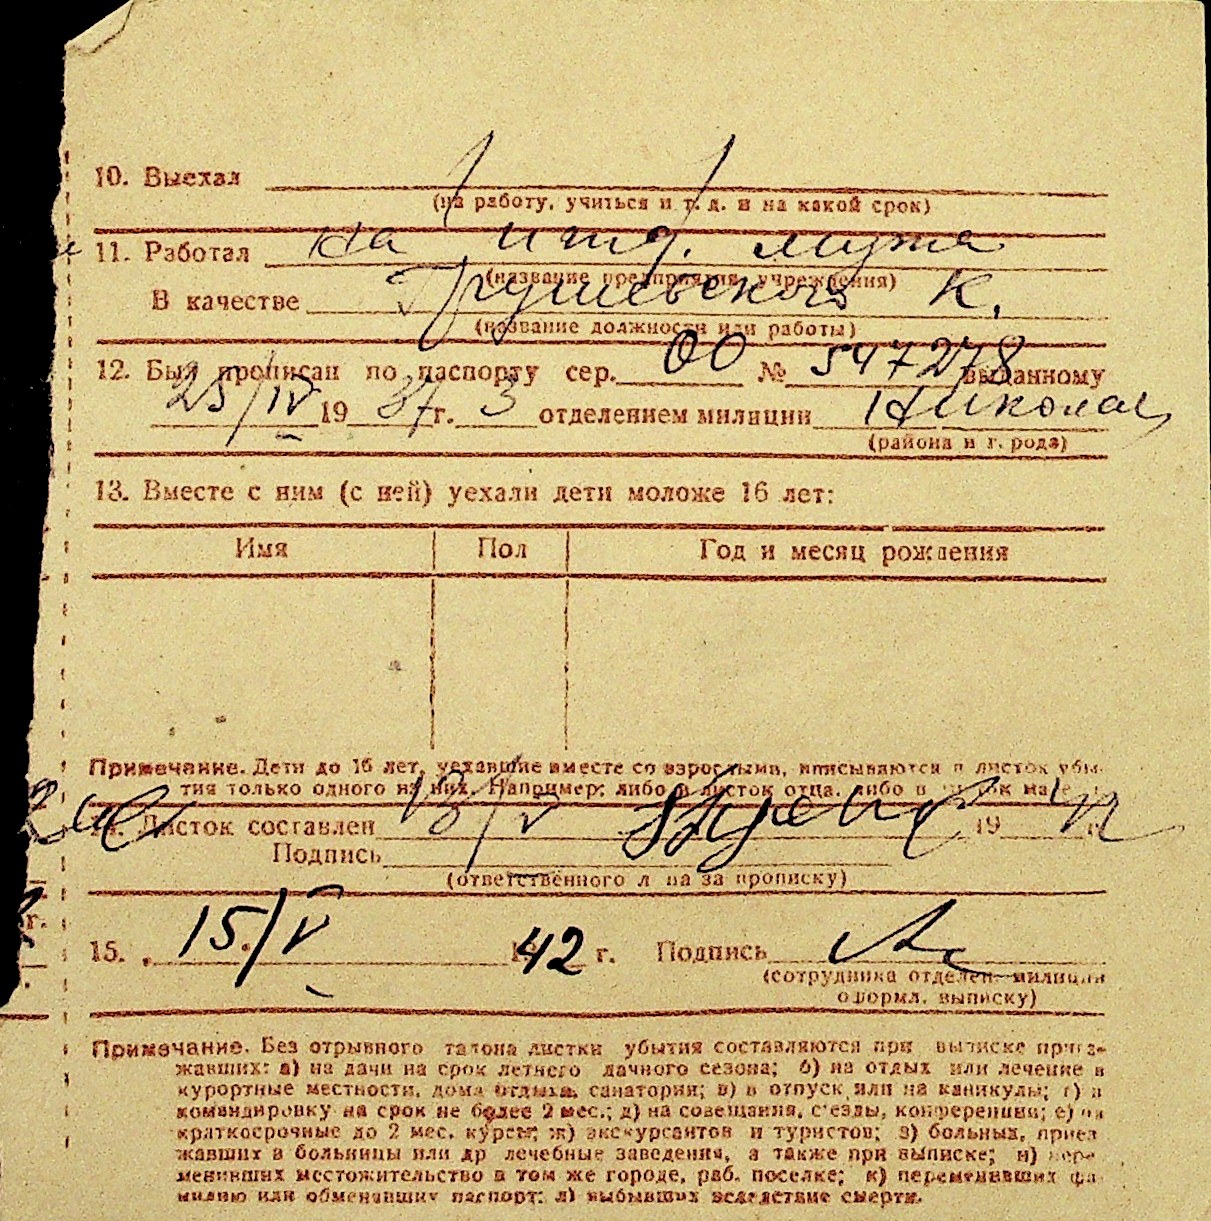 10. Выехал
(на работу, учиться и т. д. и на какой срок)
11. Работал на ижд. мужа
(название предприятия, учреждения)
В качестве Грушевского К.
(название должности или работы)
12. Был прописан по паспорту сер. 00 № 547278 выданному
25/IV 19 37 г. 3 отделением милиции Николаев
(района и г. рода)
13. Вместе с ним (с ней) уехали дети моложе 16 лет:
Имя Пол Год и месяц рождения
Примечание. Дети до 16 лет, уехавшие вместе со взрослыми, вписываются в листок убы-
тия только одного из них. Например: либо в листок отца, либо в листок матери
14. Листок составлен 13/V 19 42 г.
Подпись
(ответственного лица за прописку)
15. 15/V 1942 г. Подпись
(сотрудника отделен. милиции
оформл. выписку)
Примечание. Без отрывного талона листки убытия составляются при выписке приез-
жавших: а) на дачи на срок летнего дачного сезона; б) на отдых или лечение в
курортные местности, дома отдыха, санатории; в) в отпуск или на каникулы; г) в
командировку на срок не более 2 мес.; д) на совещания, с'езды, конференции; е) на
краткосрочные до 2 мес. курсы; ж) экскурсантов и туристов; з) больных, приез
жавших в больницы или др лечебные заведения, а также при выписке; и) пере-
менивших местожительство в том же городе, раб. поселке; к) переменивших фа-
милию или обменявших паспорт; л) выбывших вследствие смерти.